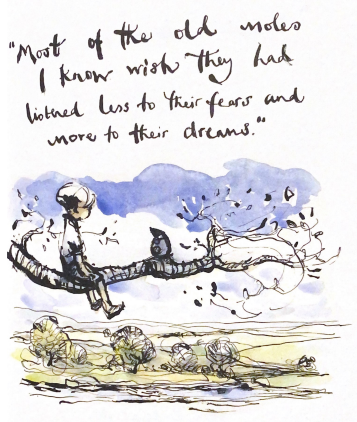 "Most of the old moles
I know wish they had
listened less to their fears and
more to their dreams."